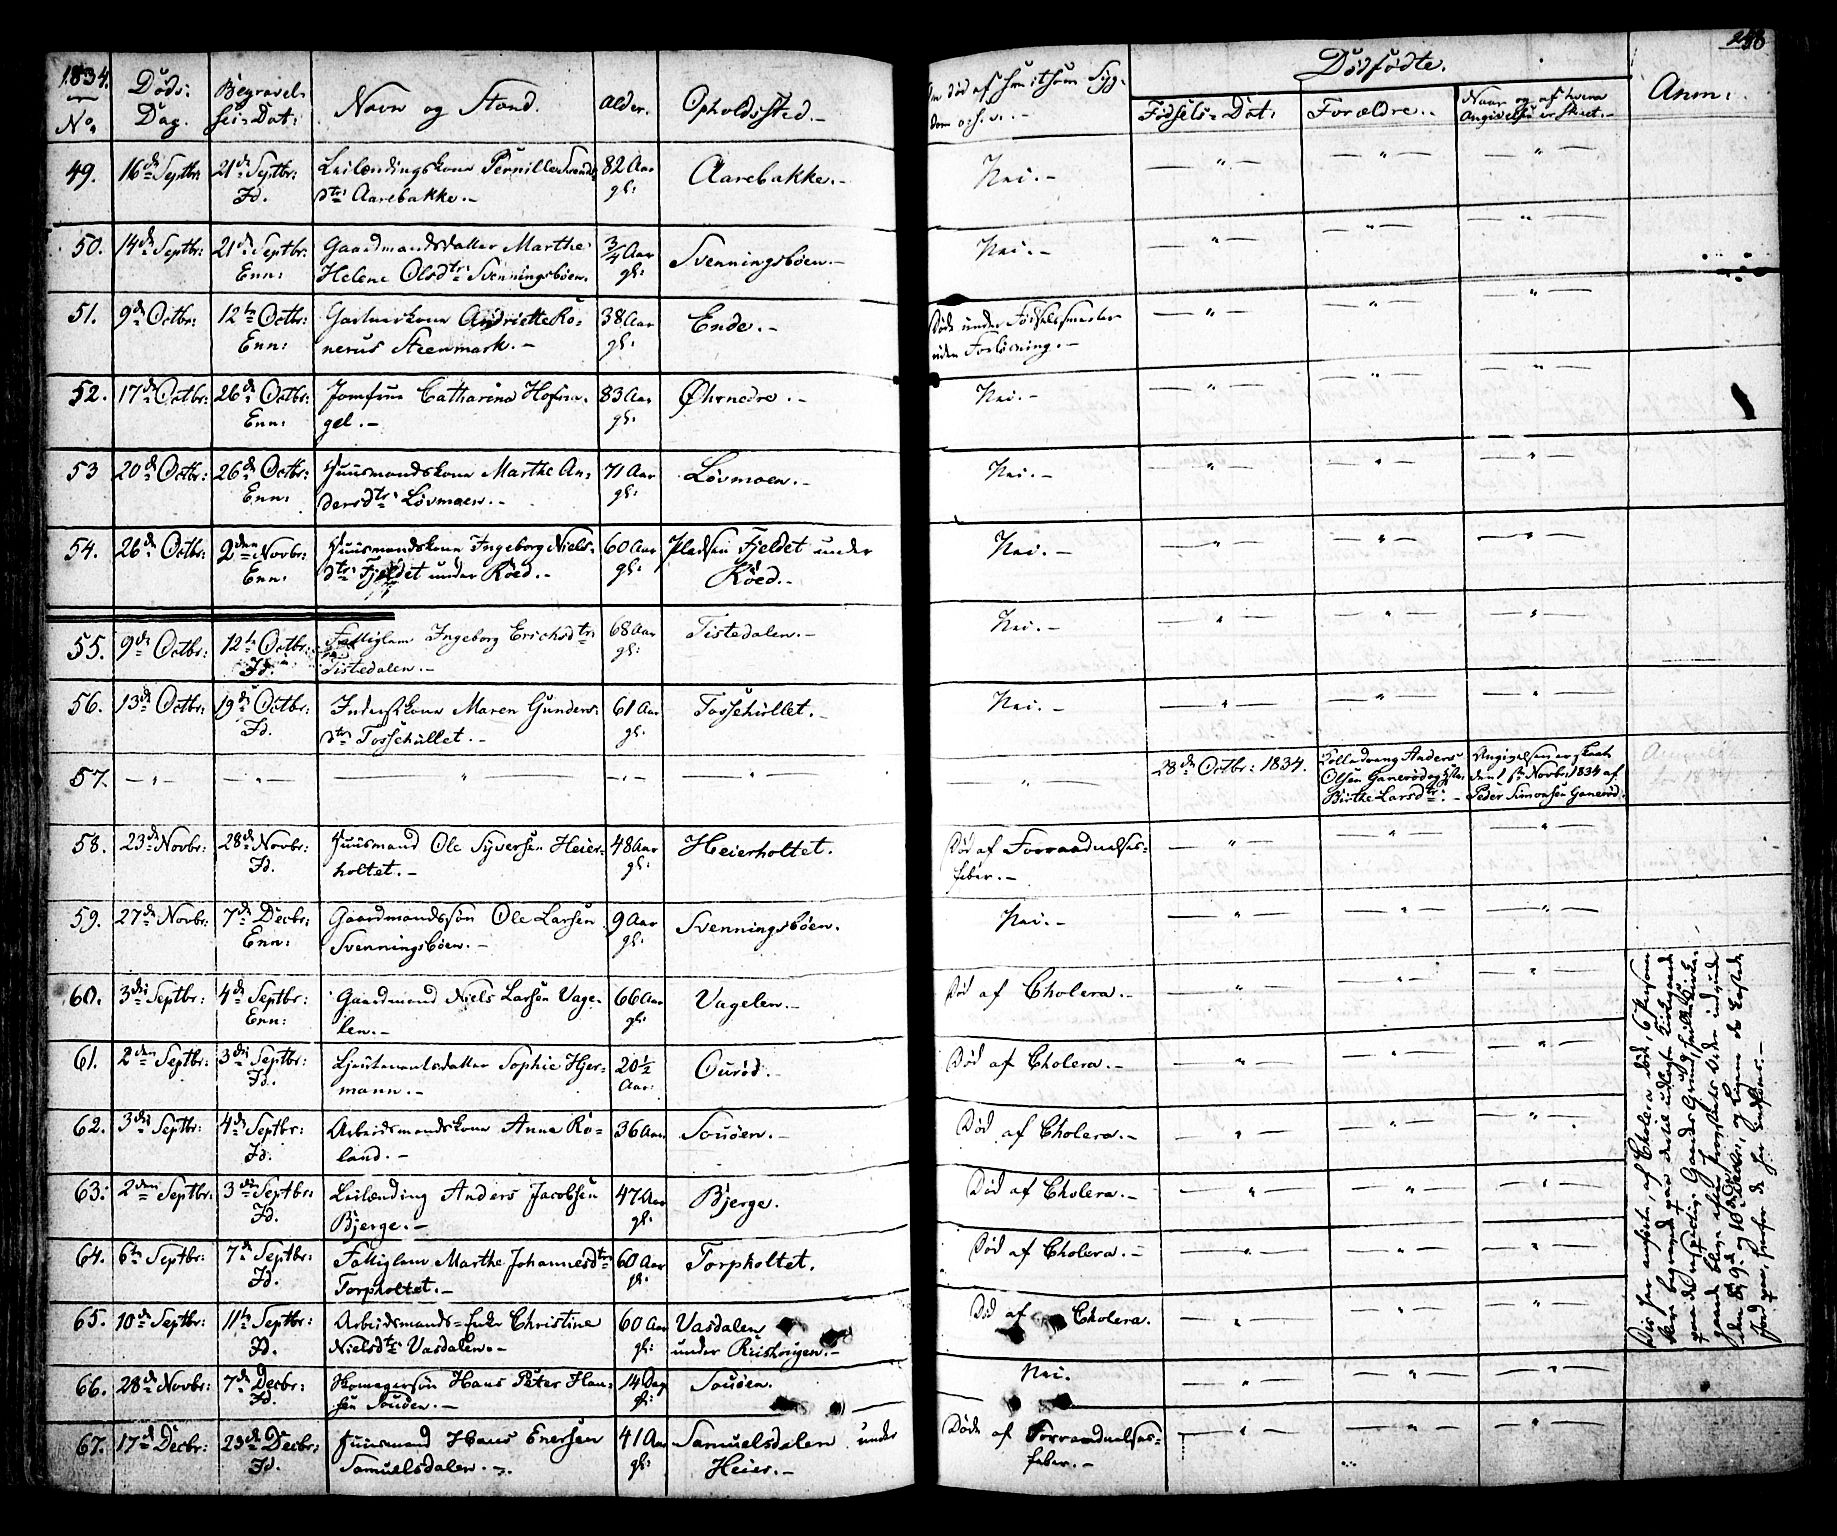 1834.
No.
Døds-
Dag.
Begravel-
ses-Dat:
Navn og Stand.
Alder.
Opholdsted.-
Om død af smitsom Syg-
dom o: s: v:.-
Dødfødte.
Fødsels-Dat:
Forældre.-
Naar og af hvem
Angivelse er skeet.-
Anm:
49. 16de Septbr: 21de Septbr: Leilændingskone Pernille 82 Aar Aarebakke.- Nei.-
Id. dtr: Aarebakke.- gl:
50. 14de Septbr: 21de Septbr: Gaardmandsdatter Marthe 3/4 Aar Svenningsbøen.- Nei.-
Enn: Helene Olsdtr: Svenningsbøen. gl:
51. 9de Octbr: 12te Octbr: Gartnerkone Andriette Ro- 38 Aar Ende.- Døde under Fødselssmerter
Enn: nerus Steenmark.- gl: uden Forløsning.-
52. 17de Octbr: 26de Octbr: Jomfrue Catharina Hofna- 83 Aar Øhrnedre.- Nei.-
Enn: gel.- gl:
53 20de Octbr: 26de Octbr: Huusmandskone Marthe An- 71 Aar Løvmoen.- Nei.-
Enn: dersdtr: Løvmoen.- gl:
54. 26de Octbr: 2den Novbr: Huusmandskone Ingeborg Niels- 60 Aar Pladsen Fjeldet under Nei.-
Enn: dtr: Fjeldet under Røed.- gl: Røed.-
55. 9de Octbr: 12te Octbr: Fattiglem Ingeborg Erichsdtr: 68 Aar Tistedalen.- Nei.-
Id. Tistedalen.- gl:
56. 13de Octbr: 19de Octbr: Inderstkone Maren Gunders- 61 Aar Tossehullet.- Nei.-
Id. dtr: Tossehullet.- gl:
57. 28de Octbr: 1834. Anders Angivelsen er skeet
Olsen Ganerød og den 1ste Novbr: 1834 af
Birthe Larsdtr:.- Peder Simonsen Ganerød.
58. 23de Novbr: 28de Novbr: Huusmand Ole Syversen Heier- 48 Aar Heierholtet. Død af Forraadnelses-
Id. holtet.- gl: feber.-
59. 27de Novbr: 7de Decbr: Gaardmandssøn Ole Larsen 9 Aar Svenningsbøen. Nei.-
Enn: Svenningsbøen.- gl:
60. 3die Septbr: 4de Septbr: Gaardmand Niels Larsen Vage- 66 Aar Vagelen.- Død af Cholera.-
Enn: len.- gl:
61. 2den Septbr: 3die Septbr: Lieutenantsdatter Sophie Hjer- 20 1/2 Ourød.- Død af Cholera.-
Id. mann.- Aar:
62. 3die Septbr: 4de Septbr: Arbeidsmandskone Anna Ro- 36 Aar Souøen.- Død af Cholera.-
Id. land.-
63. 2den Septbr: 3die Septbr: Leilænding Anders Jacobsen 47 Aar Bjerge. Død af Cholera.-
Id. Bjerge.- gl:
64. 6te Septbr: 7de Septbr: Fattiglem Marthe Johannesdtr: 60 Aar Torpholtet. Død af Cholera.-
Id. Torpholtet.- gl:
65. 10de Septbr: 11te Septbr: Arbeidsmands-Enke Christine 60 Aar Vasdalen Død af Cholera.
Id. Nielsdtr: Vasdalen.- gl: under
66. 28de Novbr: 7de Decbr: Hans Peter Han- 14 Dag Souøen. Nei.
Id. sen Souøen.- gl:
67. 17de Decbr: 23de Decbr: Huusmand Hans Enersen 41 Aar Samuelsdalen under Døde af Forraadnelses-
Id. Samuelsdalen.- gl: Heier.- feber.-
De her anførte, af Cholera døde, 6 Personer